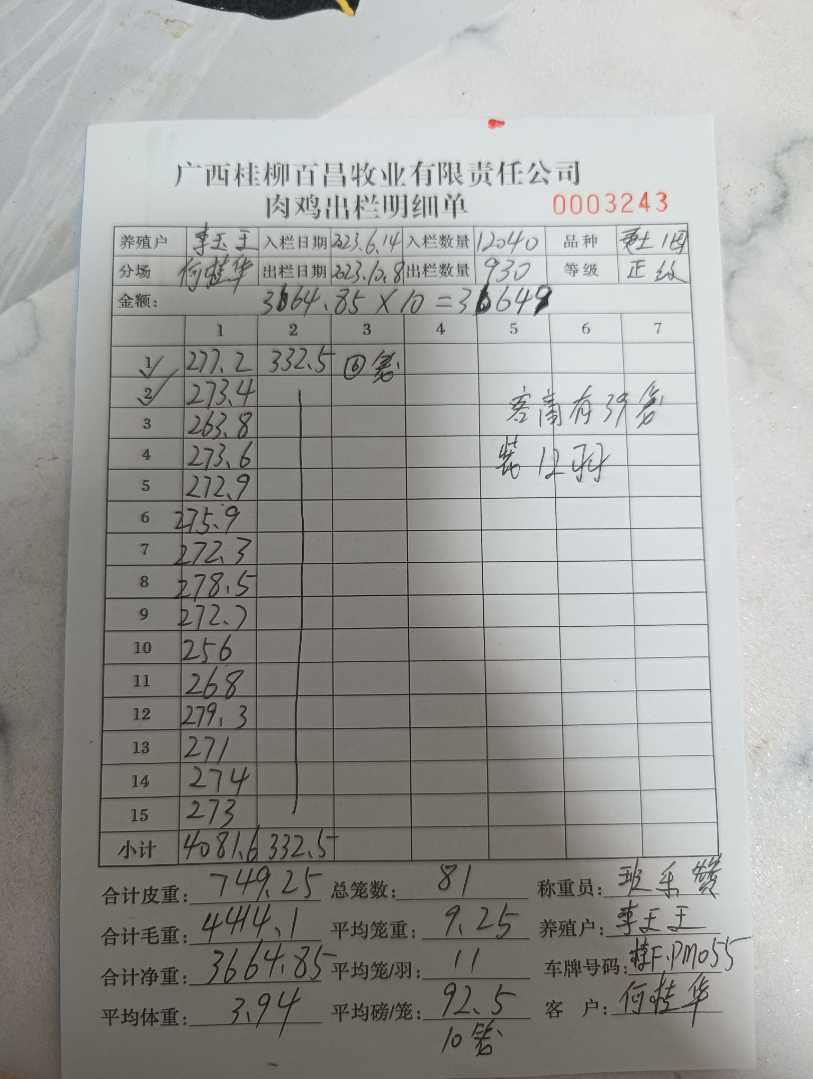 广西桂柳百昌牧业有限责任公司
肉鸡出栏明细单 0003243
养殖户 李玉玉 入栏日期 2023.6.14 入栏数量 12040 品种
分场 何桂华 出栏日期 2023.10.8 出栏数量 930 等级 正
金额: 3664.85 × 10 = 36649
1 2 3 4 5 6 7
1 277.2 332.5 ⑥笼
2 273.4
3 263.8 客商有39笼
4 273.6 装12羽
5 272.9
6 275.9
7 272.3
8 278.5
9 272.7
10 256
11 268
12 279.3
13 271
14 274
15 273
小计 4081.6 332.5
合计皮重: 749.25 总笼数: 81 称重员:
合计毛重: 4414.1 平均笼重: 9.25 养殖户: 李玉玉
合计净重: 3664.85 平均笼/羽: 11 车牌号码: 桂F.PM055
平均体重: 3.94 平均磅/笼: 92.5 客 户: 何桂华
10笼